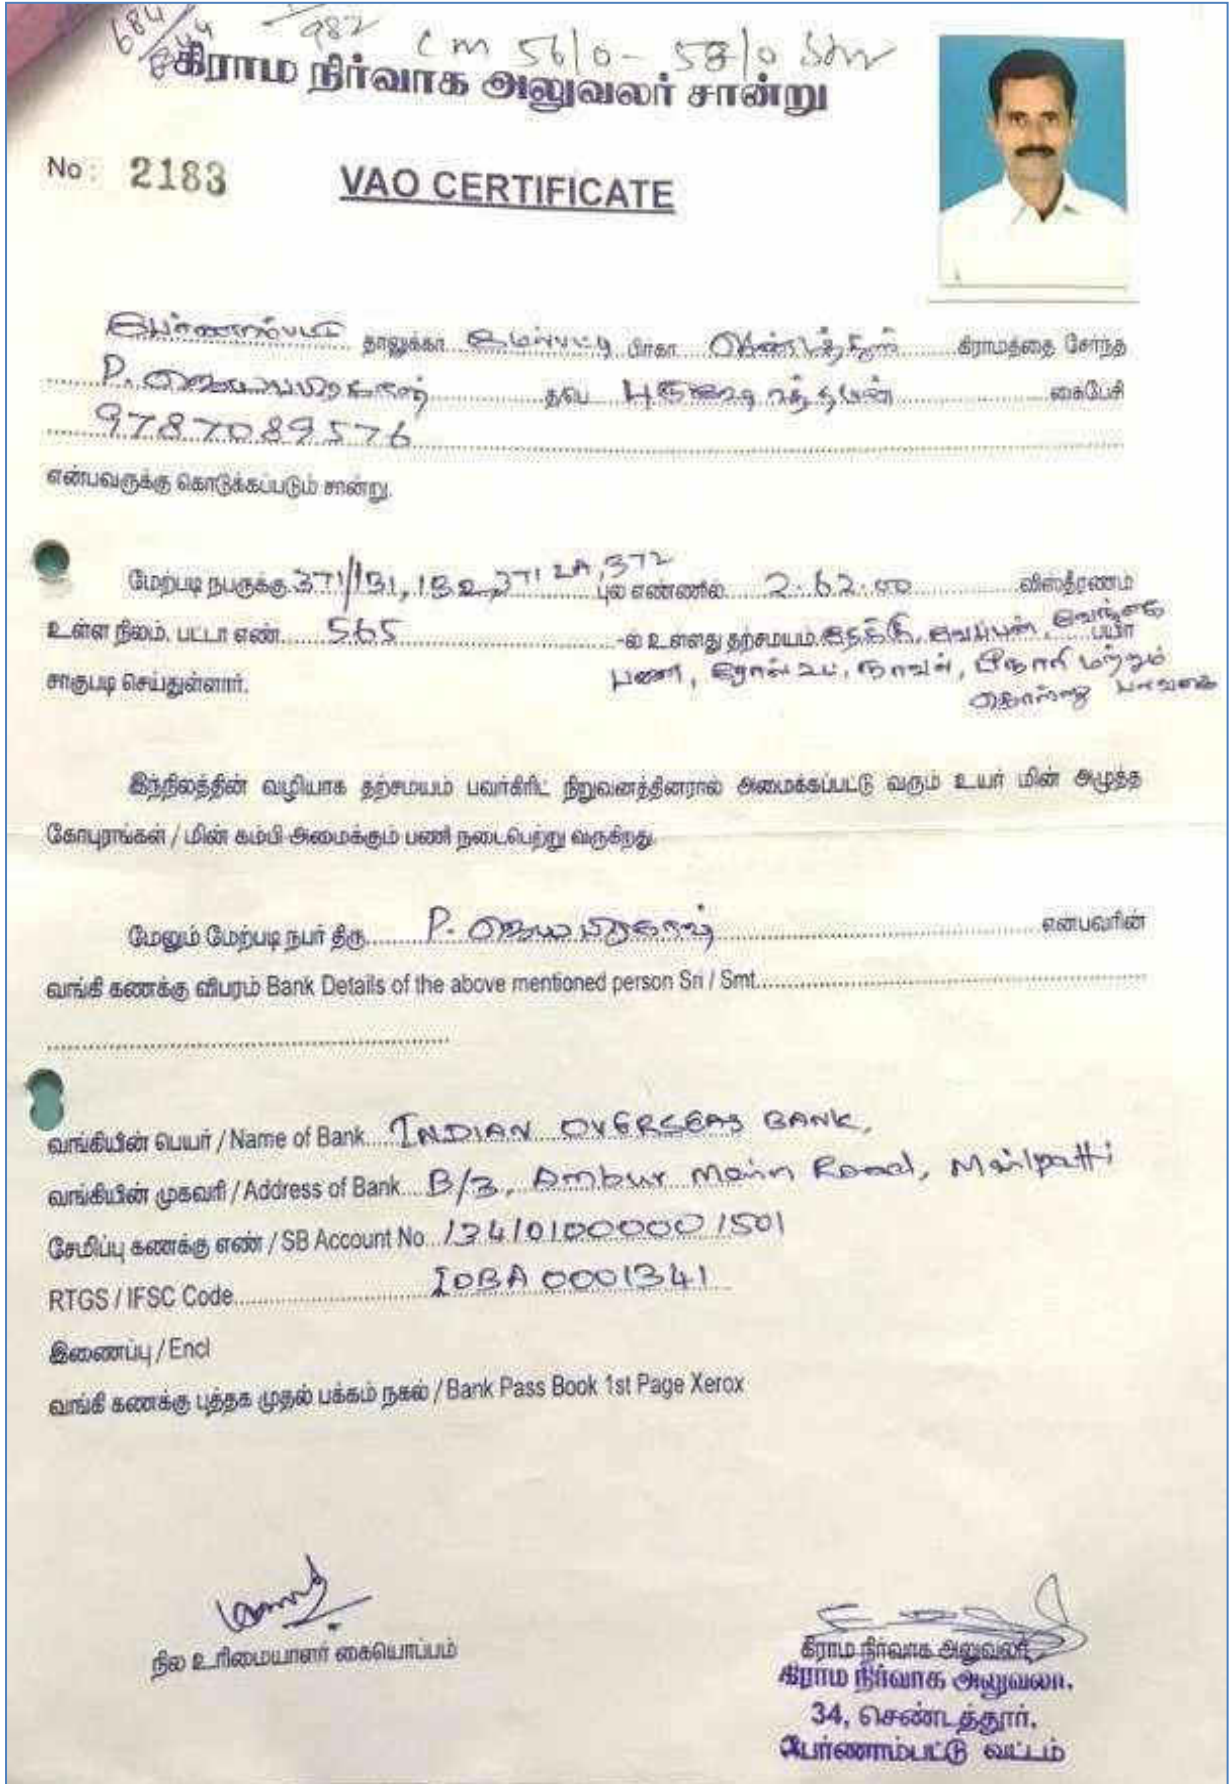 684/944 982 Cm 56/0 - 58/0
கிராம நிர்வாக அலுவலர் சான்று
No : 2183 VAO CERTIFICATE
பேர்ணாம்பட்டு தாலுக்கா மேல்பட்டி பிர்கா செண்டத்தூர் கிராமத்தை சேர்ந்த
P. ஜெயபிரகாஷ் த/பெ கைபேசி
9787089576
என்பவருக்கு கொடுக்கப்படும் சான்று.
மேற்படி நபருக்கு 371/1B1, 1B2, 371 2A, 372 புல எண்ணில் 2.62.00 விஸ்தீரணம்
உள்ள நிலம், பட்டா எண் 565 -ல் உள்ளது தற்சமயம் தேக்கு, வேப்பன், பயிர்
சாகுபடி செய்துள்ளார். நாவல், மற்றும்
இந்நிலத்தின் வழியாக தற்சமயம் பவர்கிரிட் நிறுவனத்தினரால் அமைக்கப்பட்டு வரும் உயர் மின் அழுத்த
கோபுரங்கள் / மின் கம்பி அமைக்கும் பணி நடைபெற்று வருகிறது.
மேலும் மேற்படி நபர் திரு P. ஜெயபிரகாஷ் என்பவரின்
வங்கி கணக்கு விபரம் Bank Details of the above mentioned person Sri / Smt
வங்கியின் பெயர் / Name of Bank INDIAN OVERSEAS BANK,
வங்கியின் முகவரி / Address of Bank B/3, Ambur Main Road, Mailpatti
சேமிப்பு கணக்கு எண் / SB Account No 134101000001501
RTGS / IFSC Code IOBA0001341
இணைப்பு / Encl
வங்கி கணக்கு புத்தக முதல் பக்கம் நகல் / Bank Pass Book 1st Page Xerox
நில உரிமையாளர் கையொப்பம்
கிராம நிர்வாக அலுவலர்
கிராம நிர்வாக அலுவலர்.
34, செண்டத்தூர்.
பேர்ணாம்பட்டு வட்டம்